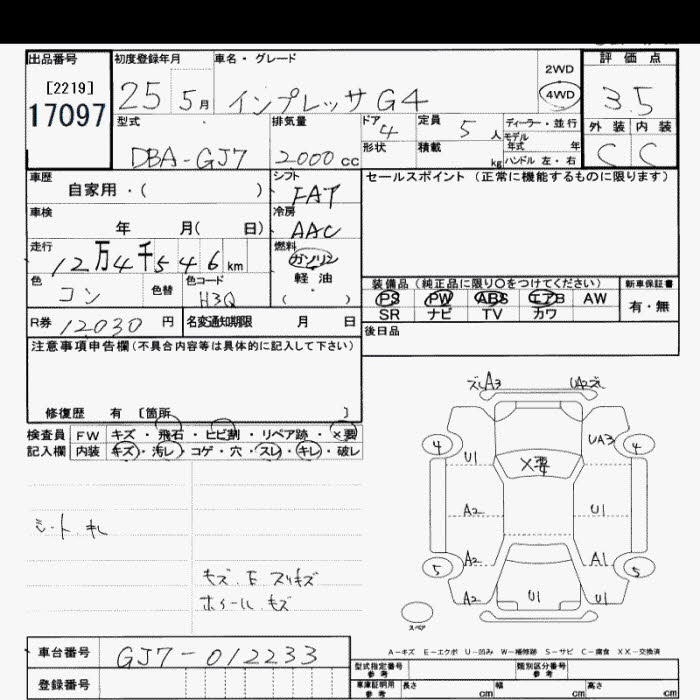 出品番号 初度登録年月 車名・グレード 評価点
[2219] 2WD
17097 25 5月 インプレッサG4 4WD 3.5
型式 排気量 ドア 4 定員 5 人 ディーラー・並行 外装 内装
モデル年式 年
DBA-GJ7 2000cc 形状 積載 kg ハンドル 左・右 C C
車歴 シフト セールスポイント (正常に機能するものに限ります)
自家用・( ) FAT
車検 冷房
年 月( 日) AAC
走行 燃料
12万4千546km ガソリン
色 色替 色コード 軽油
コン H3Q ( )
装備品 (純正品に限り○をつけてください) 新車保証書
PS PW ABS エアB AW 有・無
SR ナビ TV カワ
R券 12030 円 名変通知期限 月 日
後日品
注意事項申告欄 (不具合内容等は具体的に記入して下さい)
修復歴 有 [箇所 ]
検査員 FW キズ・飛石・ヒビ割・リペア跡・×要
記入欄 内装 キズ・汚レ・コゲ・穴・スレ・キレ・破レ
シート キレ
キズ、E スリキズ
ホイール キズ
A3 UA2
4 UA3 4
U1
×要
A2 U1
A2 A1
5 5
A2 U1 U1
スペア
A-キズ E-エクボ U-凹み W-補修跡 S-サビ C-腐食 XX-交換済
車台番号 GJ7-012233
登録番号
型式指定番号 参考 類別区分番号 参考
車庫証明用 参考 長さ cm 幅 cm 高さ cm